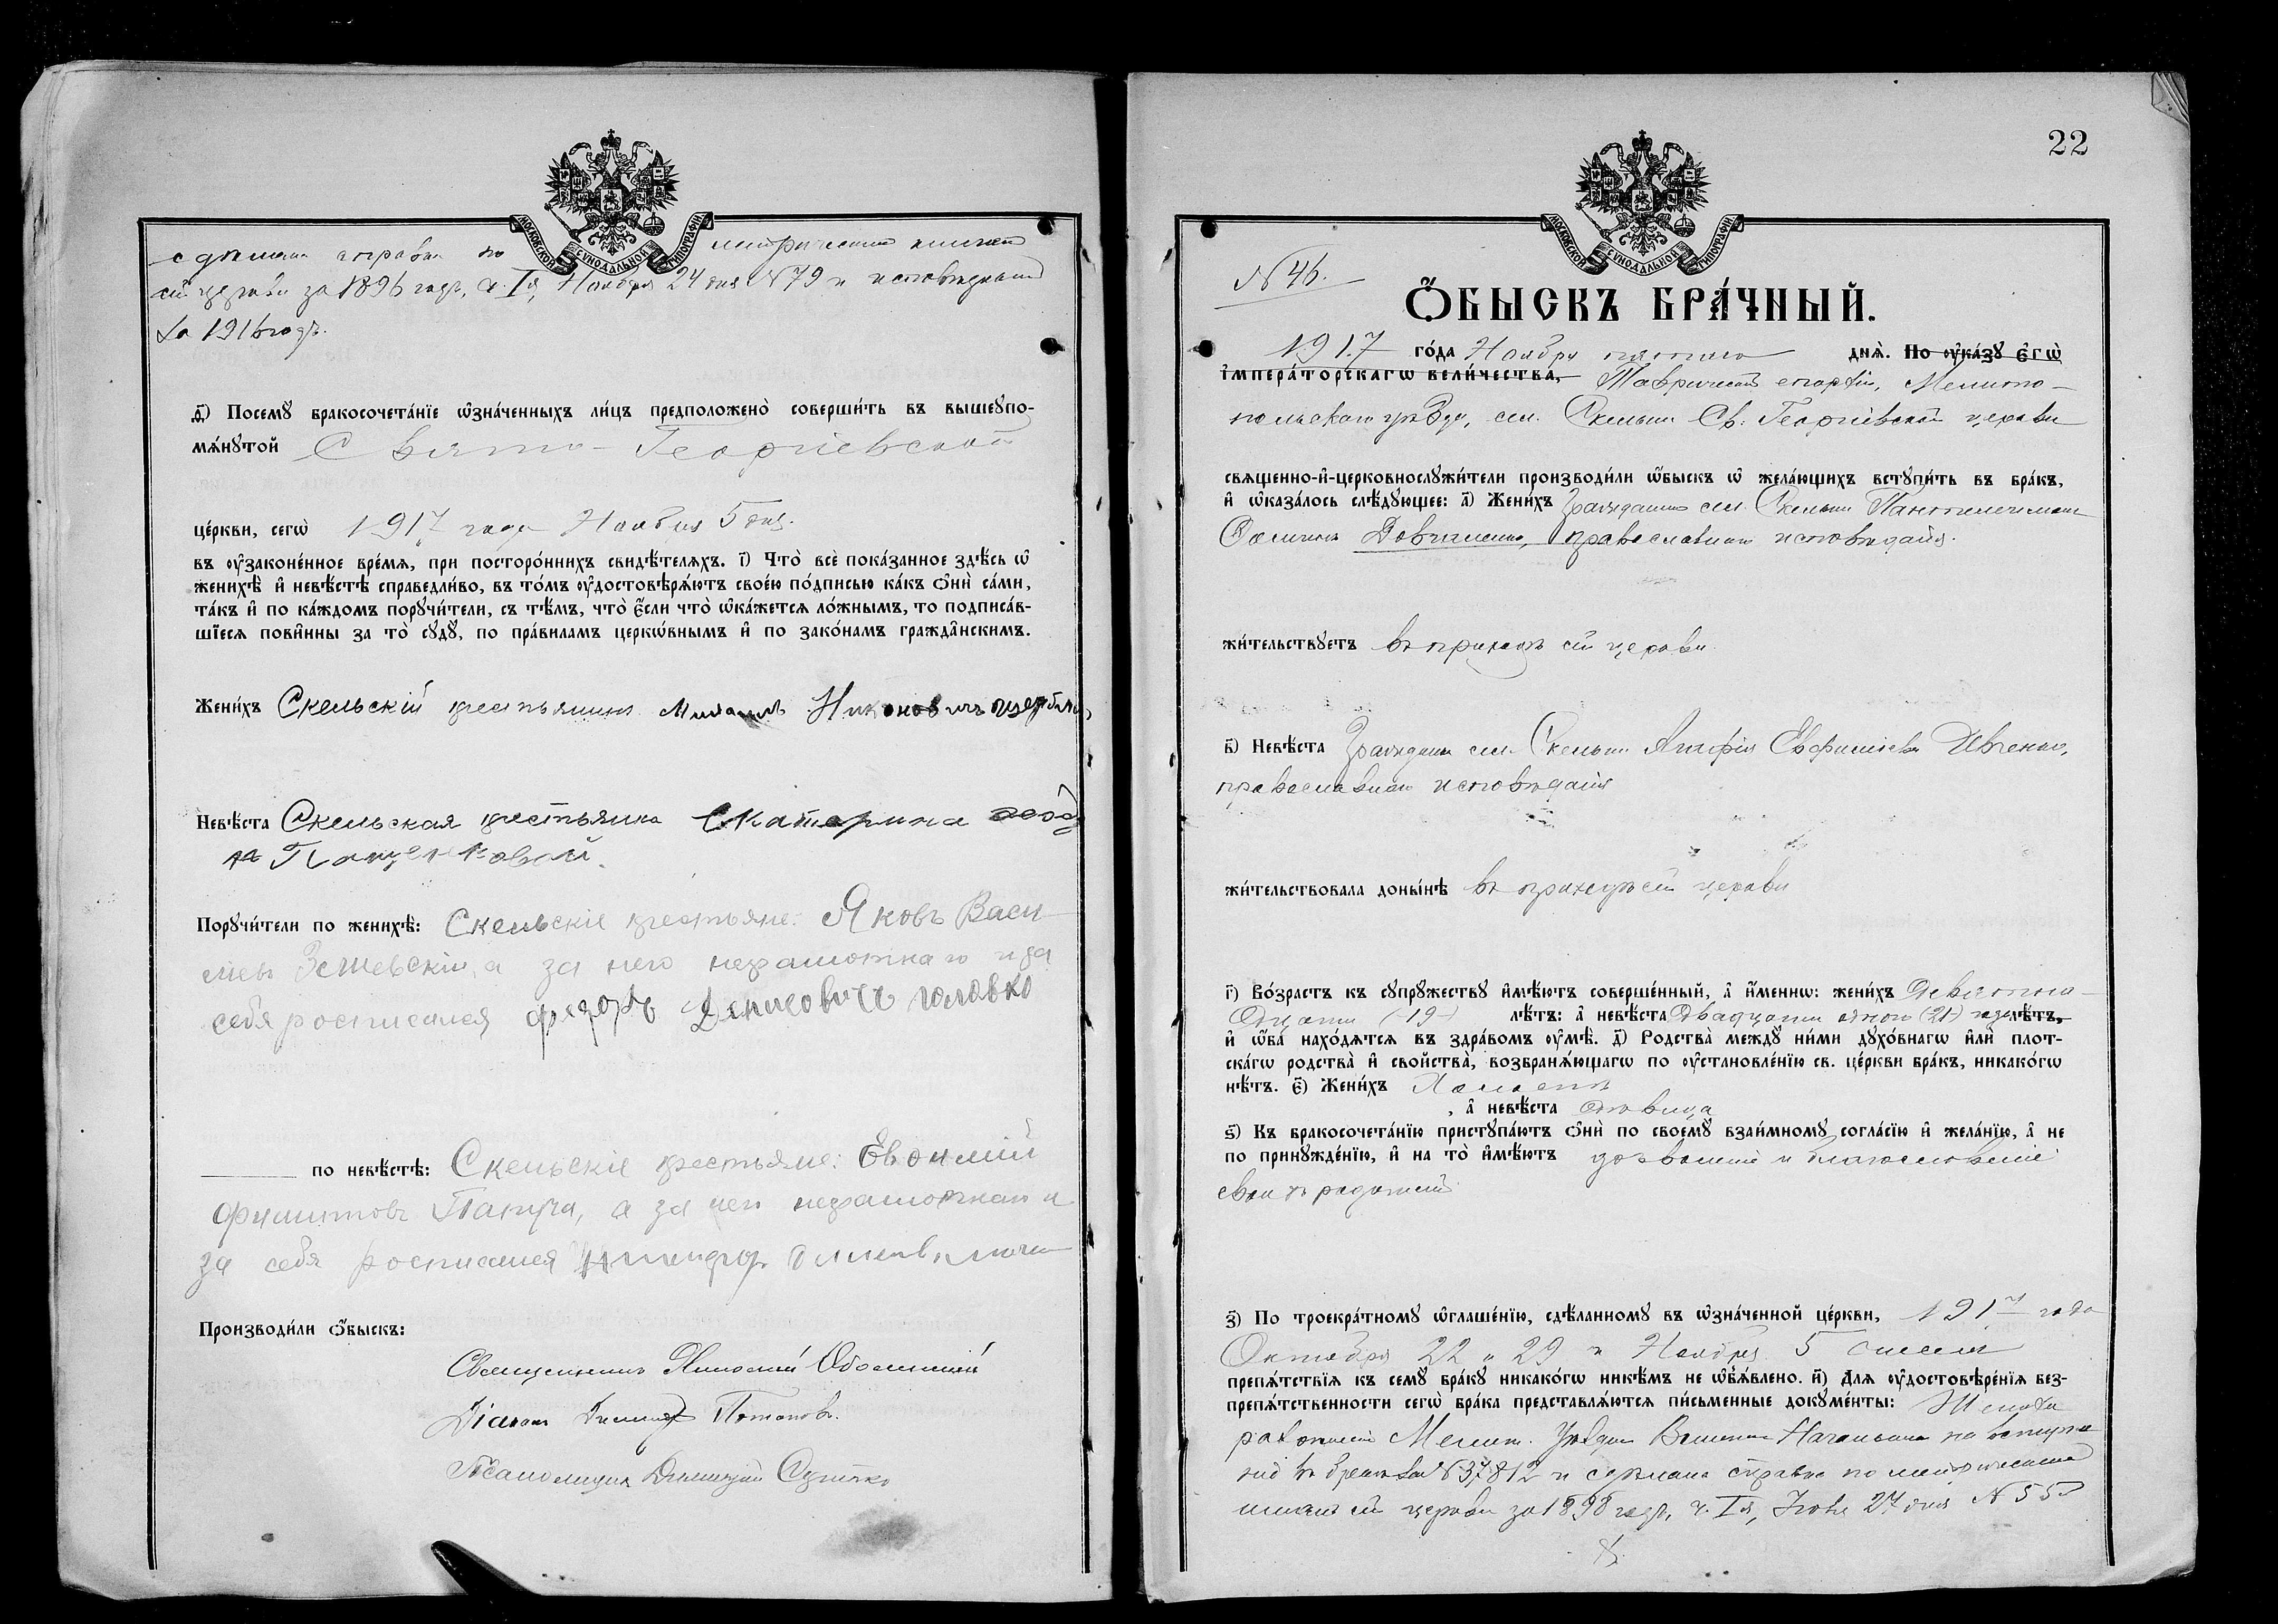 МОСКОВСКОЙ СѴНОДАЛЬНОЙ ТИПОГРАФІИ
сдѣлана справка по метрическим книгам
сей церкви за 1896 годъ, ч. Iя, Ноября 24 дня № 79 и исповѣдным
за 1916 годъ.
д҃) Посемꙋ̀ бракосочета́нїе ѡ҆зна́ченныхъ ли́цъ предположено̀ соверши́ть въ вышеꙋпо-
мѧ́нꙋтой Свято-Георгіевской
це́ркви, сегѡ̀ 1917 года Ноября 5 дня.
въ ᲂу҆законе́нное вре́мѧ, при посторо́ннихъ свидѣ́телѧхъ. і҃) Что̀ всѐ пока́занное здѣ́сь ѡ҆
женихѣ̀ и҆ невѣ́стѣ справедли́во, въ то́мъ ᲂу҆достовѣрѧ́ютъ свое́ю по́дписью ка́къ ѻ҆нѝ са́ми,
та́къ и҆ по ка́ждомъ порꙋчи́тели, съ тѣ́мъ, что̀ є҆́сли что̀ ѡ҆ка́жетсѧ ло́жнымъ, то подписа́в-
шїесѧ пови́нны за то̀ сꙋдꙋ̀, по пра́виламъ церкѡ́внымъ и҆ по зако́намъ гражда́нскимъ.
Жени́хъ Скельскій крестьянинъ Михаилъ Никоновичъ
Невѣ́ста Скельская крестьянка Екатерина
Порꙋчи́тели по женихѣ̀: Скельскіе крестьяне: Яковъ Васи-
льев а за него неграмотнаго и за
себя росписался федоръ Денисовичъ головко
по невѣ́стѣ: Скельскіе крестьяне: Евфимій
Филиппов а за него неграмотнаго и
за себя росписался
Производи́ли ѻ҆́быскъ:
Священникъ
Діаконъ Потаповъ.
Псаломщикъ Димитрій
22
МОСКОВСКОЙ СѴНОДАЛЬНОЙ ТИПОГРАФІИ
№ 46.
Ѻ҆БЫСКЪ БРА́ЧНЫЙ.
1917 го́да Ноября пятаго днѧ̀. По ᲂу҆ка́зꙋ є҆гѡ̀
і҆мпера́торскагѡ вели́чества, Таврической епархіи, Мелито-
польскаго уѣзда, сел. Скельки Св. Георгіевской церкви
свѧщенно-и҆-церковнослꙋжи́тели производи́ли ѡ҆́быскъ ѡ҆ жела́ющихъ встꙋпи́ть въ бра́къ,
и҆ ѡ҆каза́лось слѣ́дꙋющее: а҃) Жени́хъ Гражданинъ сел. Скельки Пантелеимонъ
Довгиленко, православнаго исповѣданія.
жи́тельствꙋетъ въ приходѣ сей церкви
в҃) Невѣ́ста Гражданка сел. Скельки Агафія Евфиміева
православнаго исповѣданія
жи́тельствовала доны́нѣ въ приходѣ сей церкви
г҃) Во́зрастъ къ сꙋпрꙋ́жествꙋ и҆мѣ́ютъ соверше́нный, а҆ и҆́меннѡ: жени́хъ Девятна-
дцати (19) лѣ́тъ: а҆ невѣ́ста Двадцати одного (21) года лѣ́тъ,
и҆ ѡ҆́ба нахо́дѧтсѧ въ здра́вомъ ᲂу҆мѣ̀. д҃) Родства̀ междꙋ̀ ни́ми дꙋхо́внагѡ и҆лѝ плот-
ска́гѡ родства̀ и҆ свойства̀, возбранѧ́ющагѡ по ᲂу҆становле́нїю св. це́ркви бра́къ, никако́гѡ
нѣ́тъ. є҃) Жени́хъ Холостъ
, а҆ невѣ́ста дѣвица
ѕ҃) Къ бракосочета́нїю пристꙋпа́ютъ ѻ҆нѝ по своемꙋ̀ взаи́мномꙋ согла́сїю и҆ жела́нїю, а҆ не
по принꙋжде́нїю, и҆ на то̀ и҆мѣ́ютъ дозволеніе и благословеніе
своихъ родителей
з҃) По троекра́тномꙋ ѡ҆глаше́нїю, сдѣ́ланномꙋ въ ѡ҆зна́ченной це́ркви, 1917 года
Октября 22, 29 и Ноября 5 числа
препѧ́тствїѧ къ семꙋ̀ бра́кꙋ никако́гѡ никѣ́мъ не ѡ҆б̾ѧ́влено. и҃) Длѧ ᲂу҆достовѣре́нїѧ без-
препѧ́тственности сегѡ̀ бра́ка представлѧ́ютсѧ пи́сьменные докꙋме́нты: Жениха
Мелит. Уѣзднаго Воинскаго Начальника на вступле-
ніе въ бракъ за № 37812 и сдѣлана справка по метрическим
книгам сей церкви за 1898 годъ, ч. Iя, Іюля 27 дня № 55